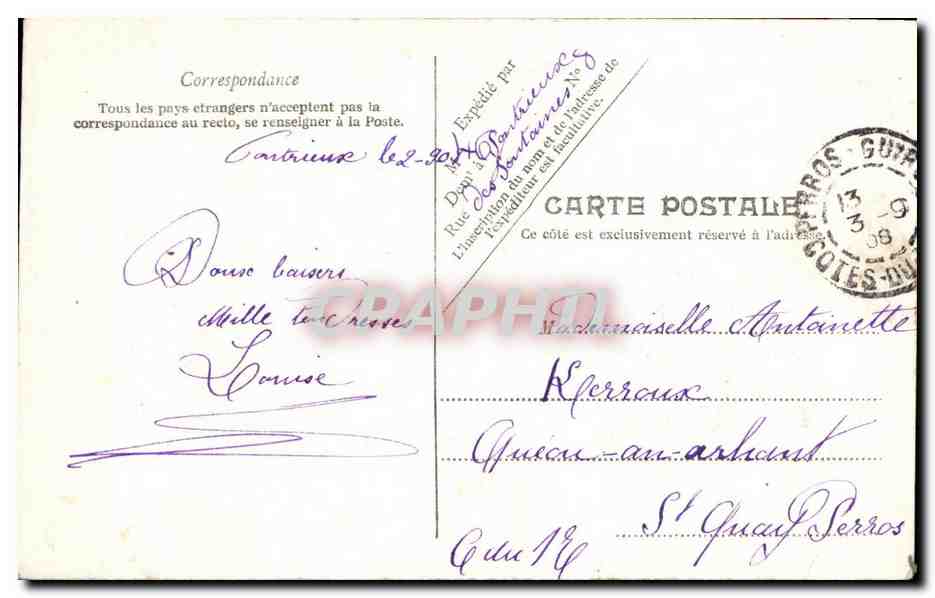 Correspondance
Tous les pays etrangers n'acceptent pas la
correspondance au recto, se renseigner à la Poste.
Pontrieux le 2-9
Doux baisers
Mille tendresses
Louise
Expédié par
M
Demt à Pontrieux
Rue des Fontaines No 8
L'inscription du nom et de l'adresse de
l'expéditeur est facultative.
CARTE POSTALE
Ce côté est exclusivement réservé à l'adresse
PERROS-GUIR
13
3 -9
08
COTES-DU
CPARHTI
Mademoiselle Antoinette
Kerroux
Quéau-an-arhant
St Quay Perros
C du N